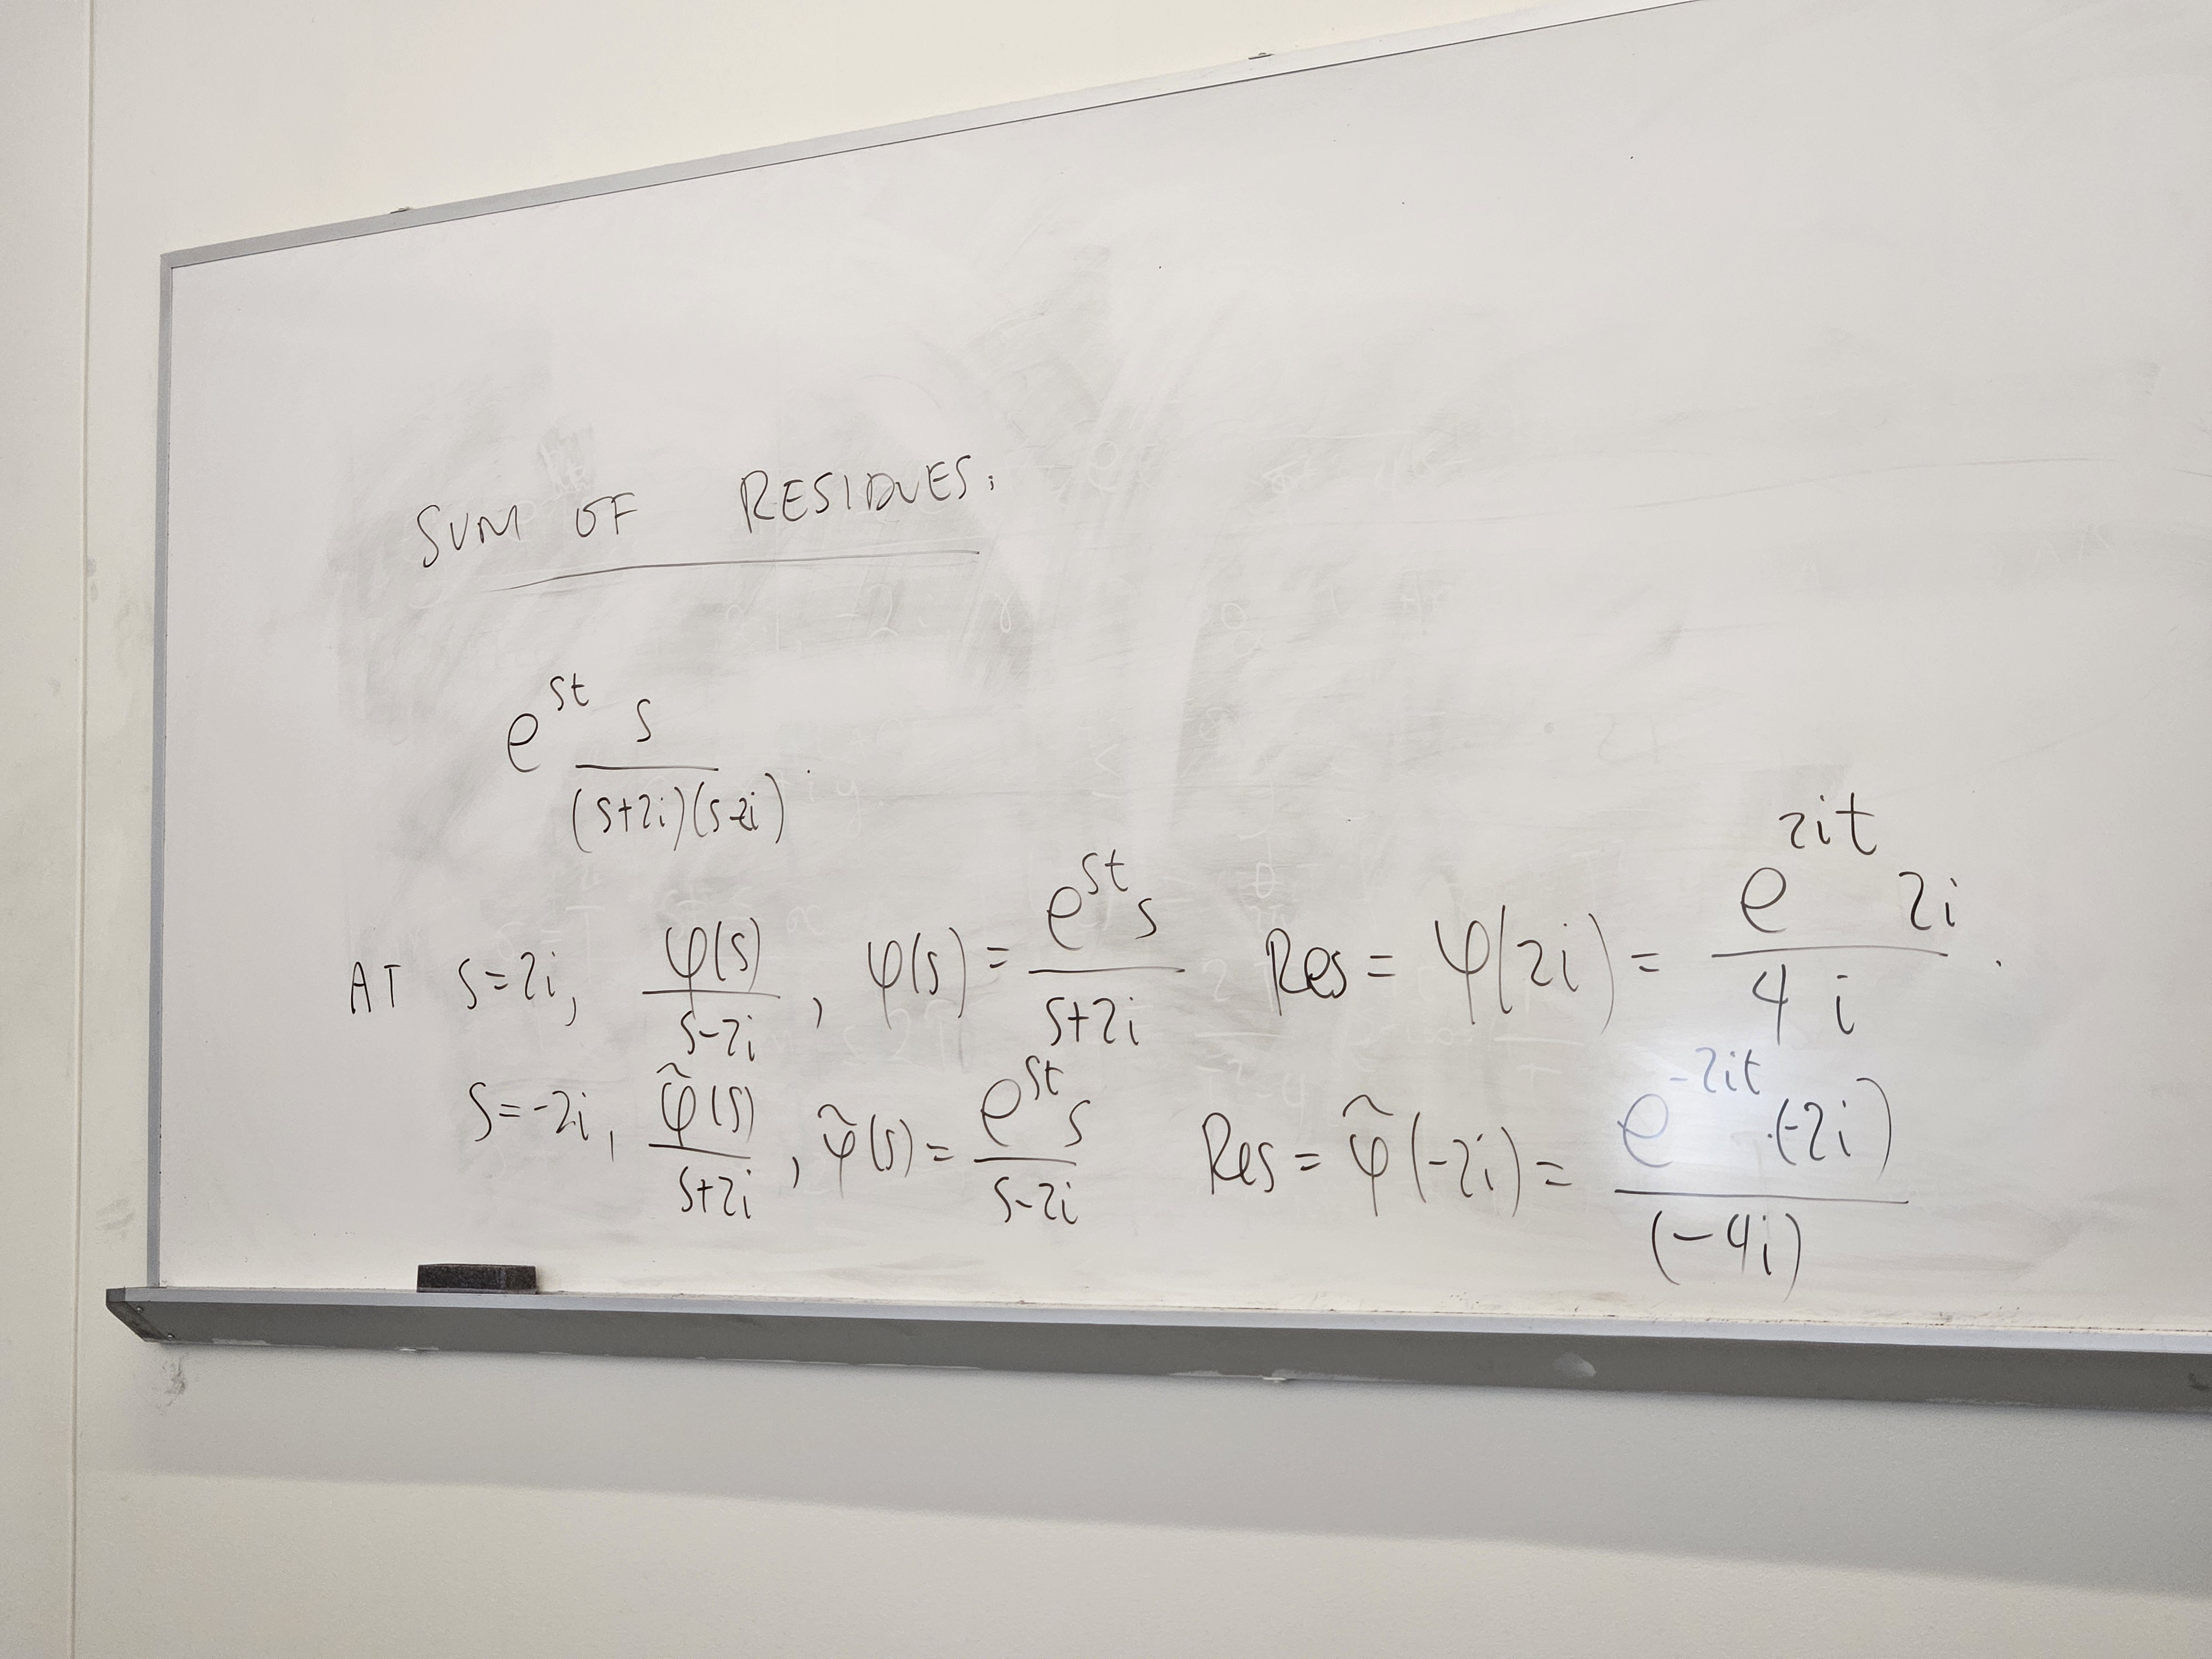 SUM OF RESIDUES:
e^{st} \frac{s}{(s+2i)(s-2i)}.
AT s=2i, \frac{φ(s)}{s-2i}, φ(s) = \frac{e^{st} s}{s+2i} Res = φ(2i) = \frac{e^{2it} 2i}{4i}.
s=-2i, \frac{\tilde{φ}(s)}{s+2i}, \tilde{φ}(s) = \frac{e^{st} s}{s-2i} Res = \tilde{φ}(-2i) = \frac{e^{-2it} \cdot (-2i)}{(-4i)}